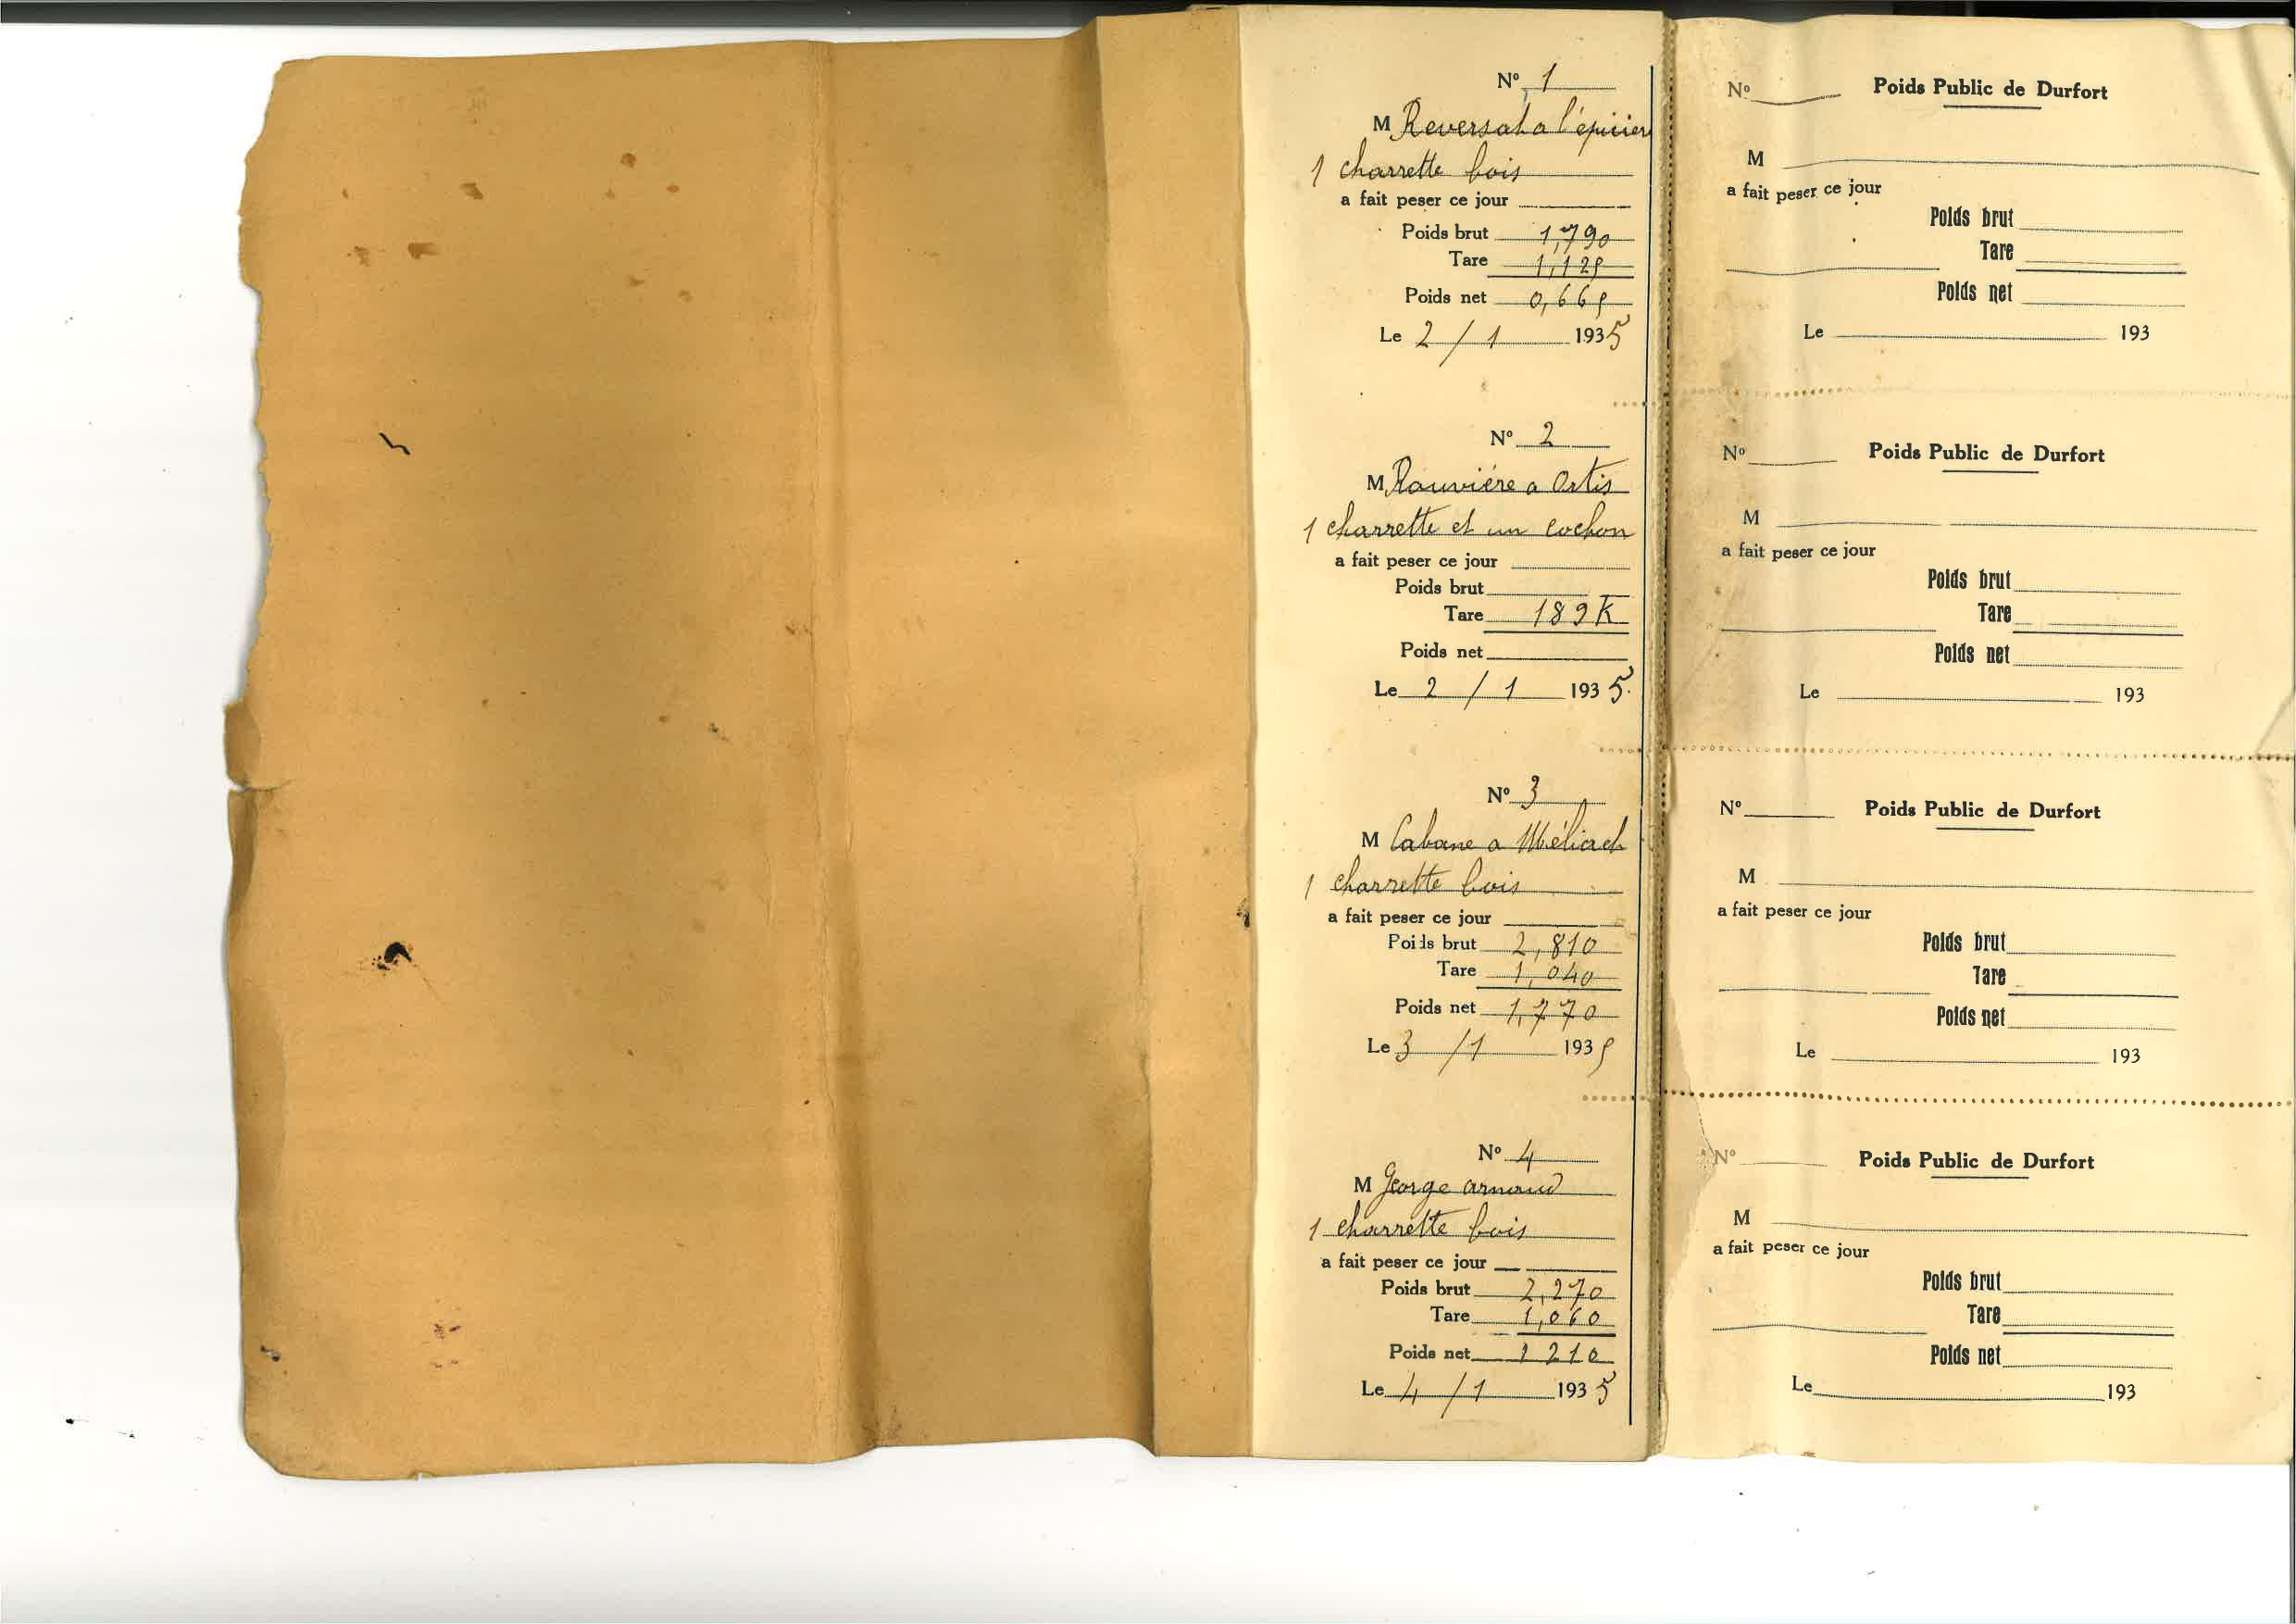 Nº 1
M Reversat a l'épicier
1 charrette bois
a fait peser ce jour
Poids brut 1,790
Tare 1,125
Poids net 0,665
Le 2 / 1 1935
Nº 2
M Rouvière a Ortis
1 charrette et un cochon
a fait peser ce jour
Poids brut
Tare 189 K
Poids net
Le 2 / 1 1935.
Nº 3
M Cabane a
1 charrette bois
a fait peser ce jour
Poids brut 2,810
Tare 1,040
Poids net 1,770
Le 3 / 1 1935
Nº 4
M George arnaud
1 charrette bois
a fait peser ce jour
Poids brut 2,270
Tare 1,060
Poids net 1210
Le 4 / 1 1935
Nº Poids Public de Durfort
M
a fait peser ce jour
Poids brut
Tare
Poids net
Le 193
Nº Poids Public de Durfort
M
a fait peser ce jour
Poids brut
Tare
Poids net
Le 193
Nº Poids Public de Durfort
M
a fait peser ce jour
Poids brut
Tare
Poids net
Le 193
Nº Poids Public de Durfort
M
a fait peser ce jour
Poids brut
Tare
Poids net
Le 193